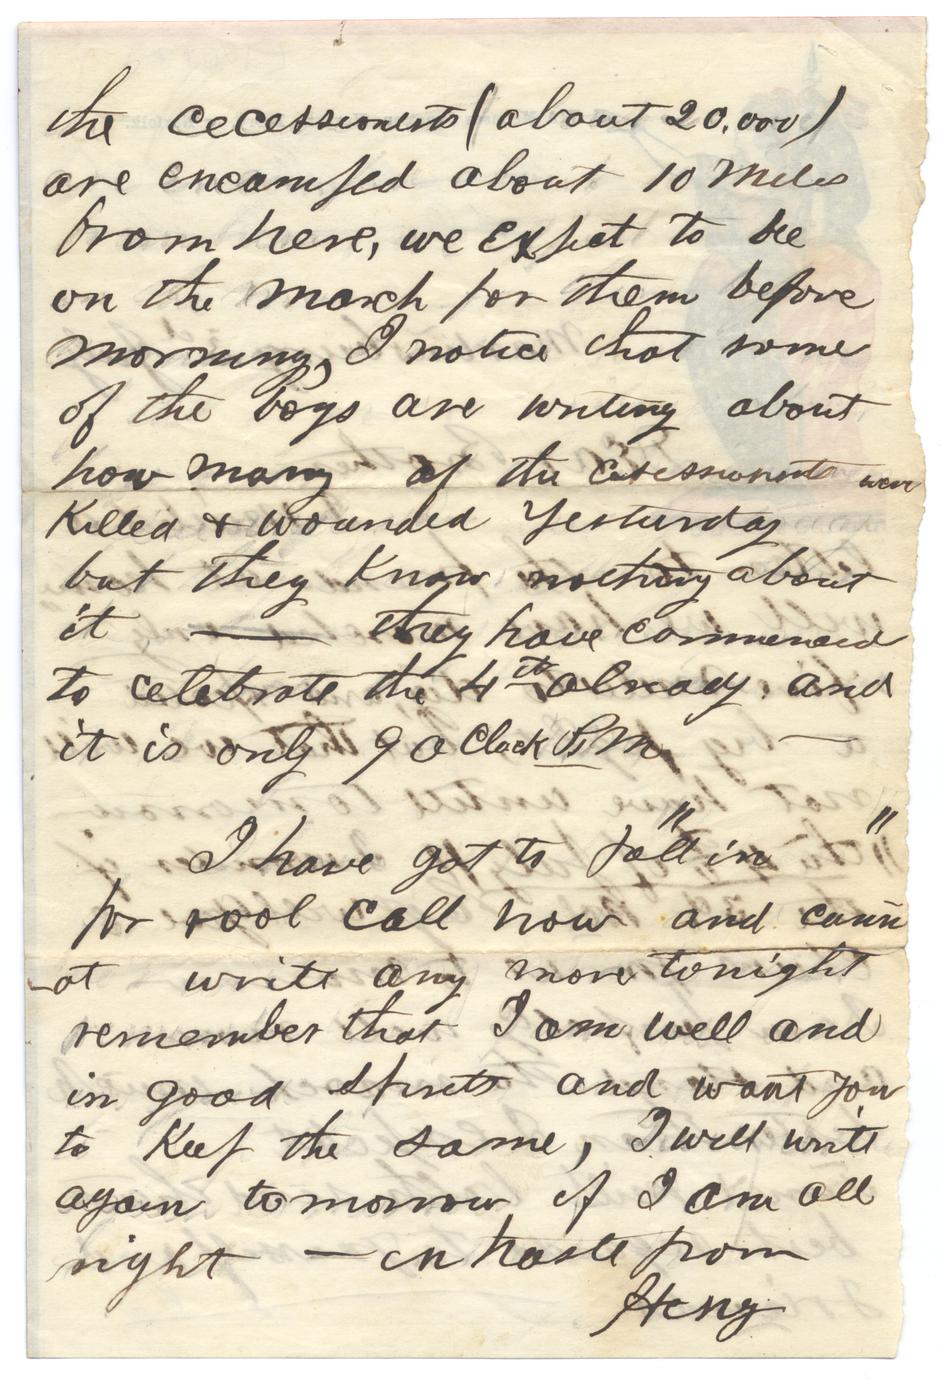 the cecessionests (about 20,000)
are encamped about 10 Miles
from here, we expect to be
on the march for them before
morning, I notice that some
of the boys are writing about
how many of the cesessionests were
Killed & wounded Yesturday
but they Know nothing about
it — they have commenced
to celebrate the 4th alreaday. and
it is only 9 o Clock P.M. —
I have got to "fall in"
for rool call now and cann
-ot write any more tonight
remember that I am well and
in good spirits and want you
to Keep the same, I will write
again tomorrow if I am all
right — in haste from
Heny